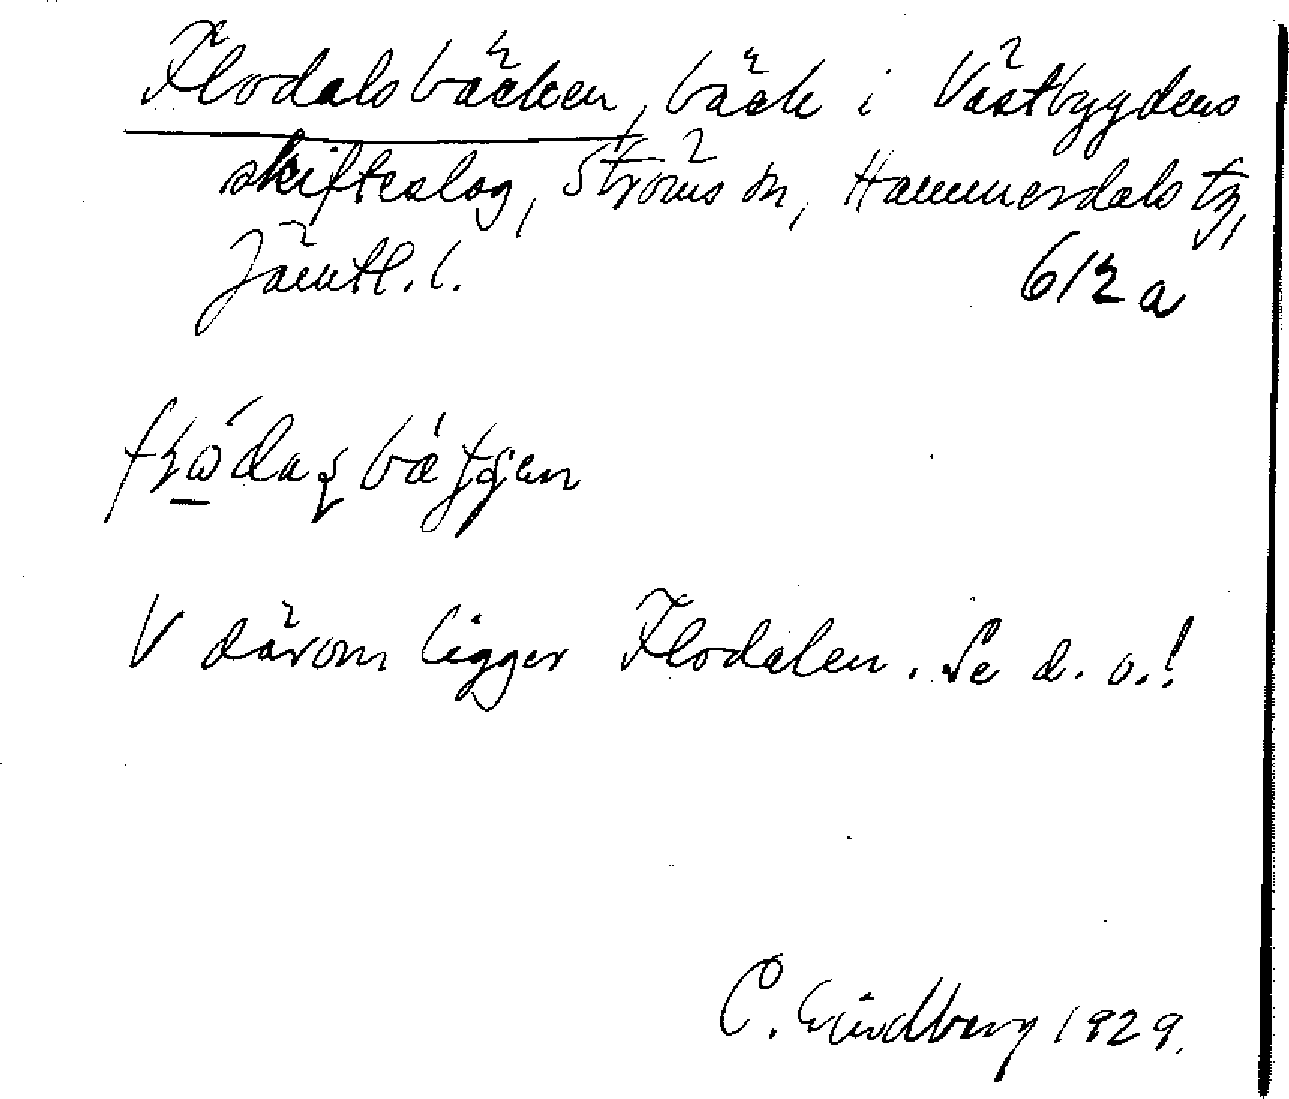 Flodalsbäcken, bäck i Västbygdens
skifteslag, Ströms sn, Hammerdals tg,
Jämtl. l. 612 a
V därom ligger Flodalen. Se d. o.!
C. Lindberg 1929.